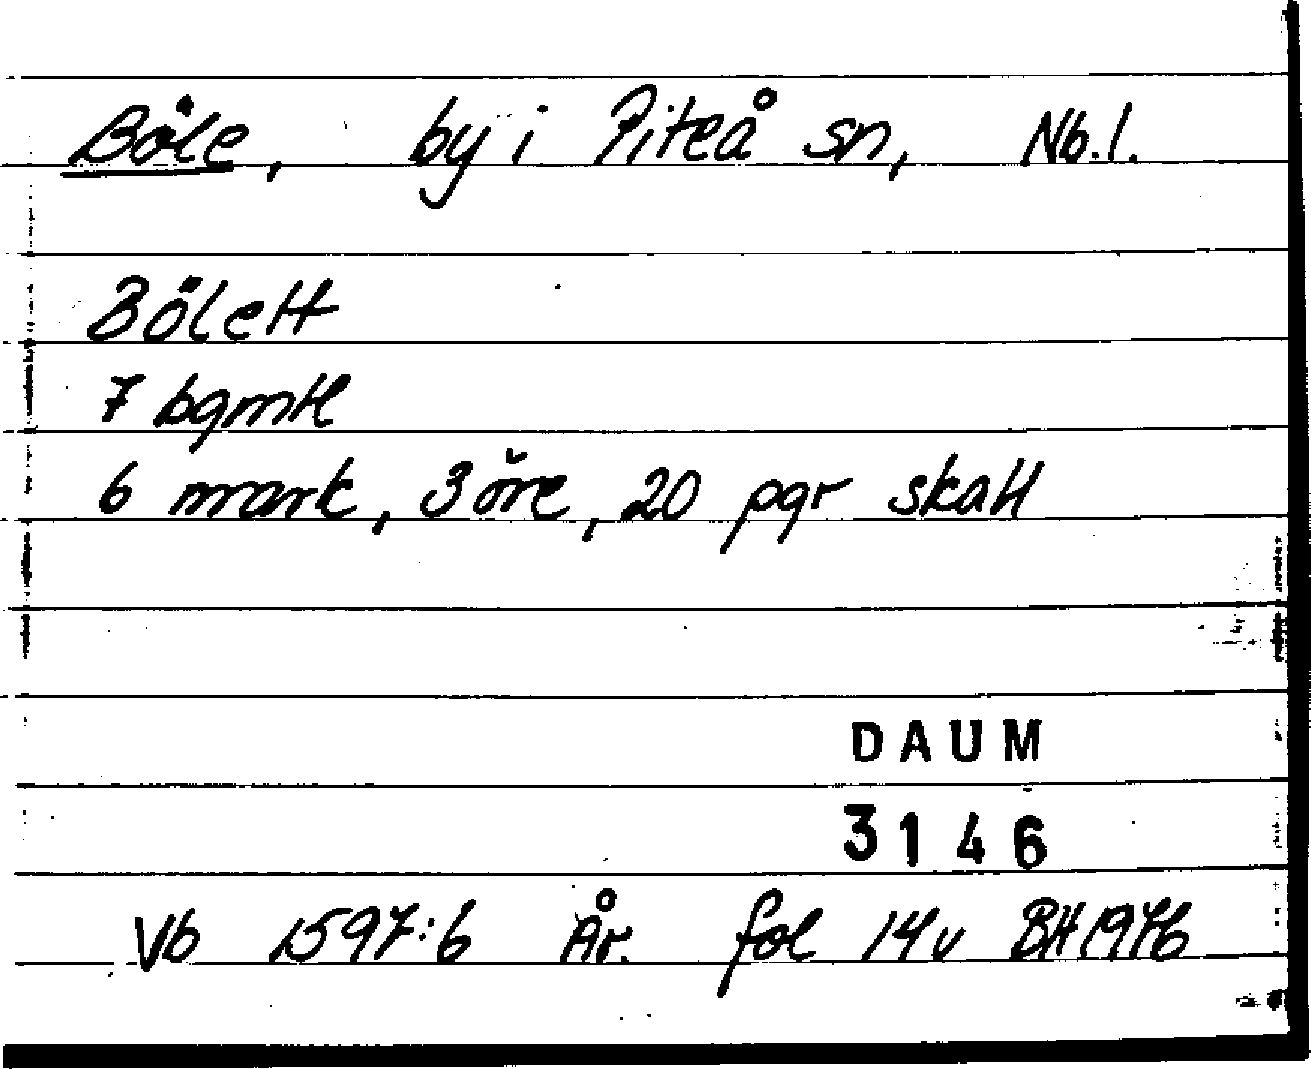 Böle, by i Piteå sn, Nb.l.
Bölett
7 bgmtl
6 mark, 3 öre, 20 pgr skatt
DAUM
3146
Vb 1597:6 År. fol 14v BH 1976